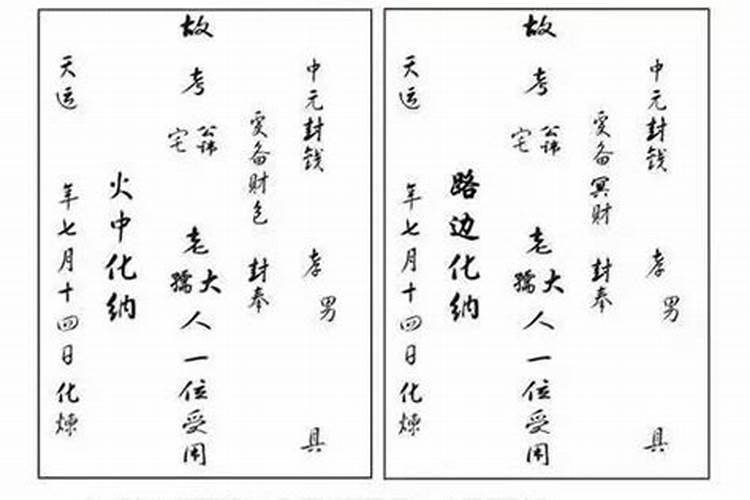 中元封钱 孝男 具
爱备财包 封奉
故考 公讳 宅 老大孺人一位受用
火中化纳
天运 年七月十四日化炼
中元封钱 孝男 具
爱备冥财 封奉
故考 公讳 宅 老大孺人一位受用
路边化纳
天运 年七月十四日化炼